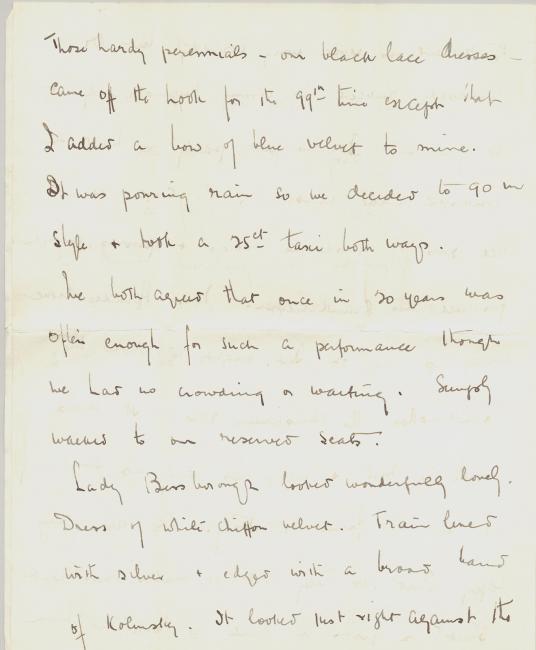 Those hardy perennials - our black lace dresses -
came off the hook for the 99th time except that
I added a bow of blue velvet to mine.
It was pouring rain so we decided to go in
style + took a 25ct taxi both ways.
We both agreed that once in 20 years was
often enough for such a performance though
we had no crowding or waiting. Simply
walked to our reserved seats.
Lady Bessborough looked wonderfully lovely.
Dress of white chiffon velvet. Train lined
with silver + edged with a broad band
of Kolinsky. It looked just right against the